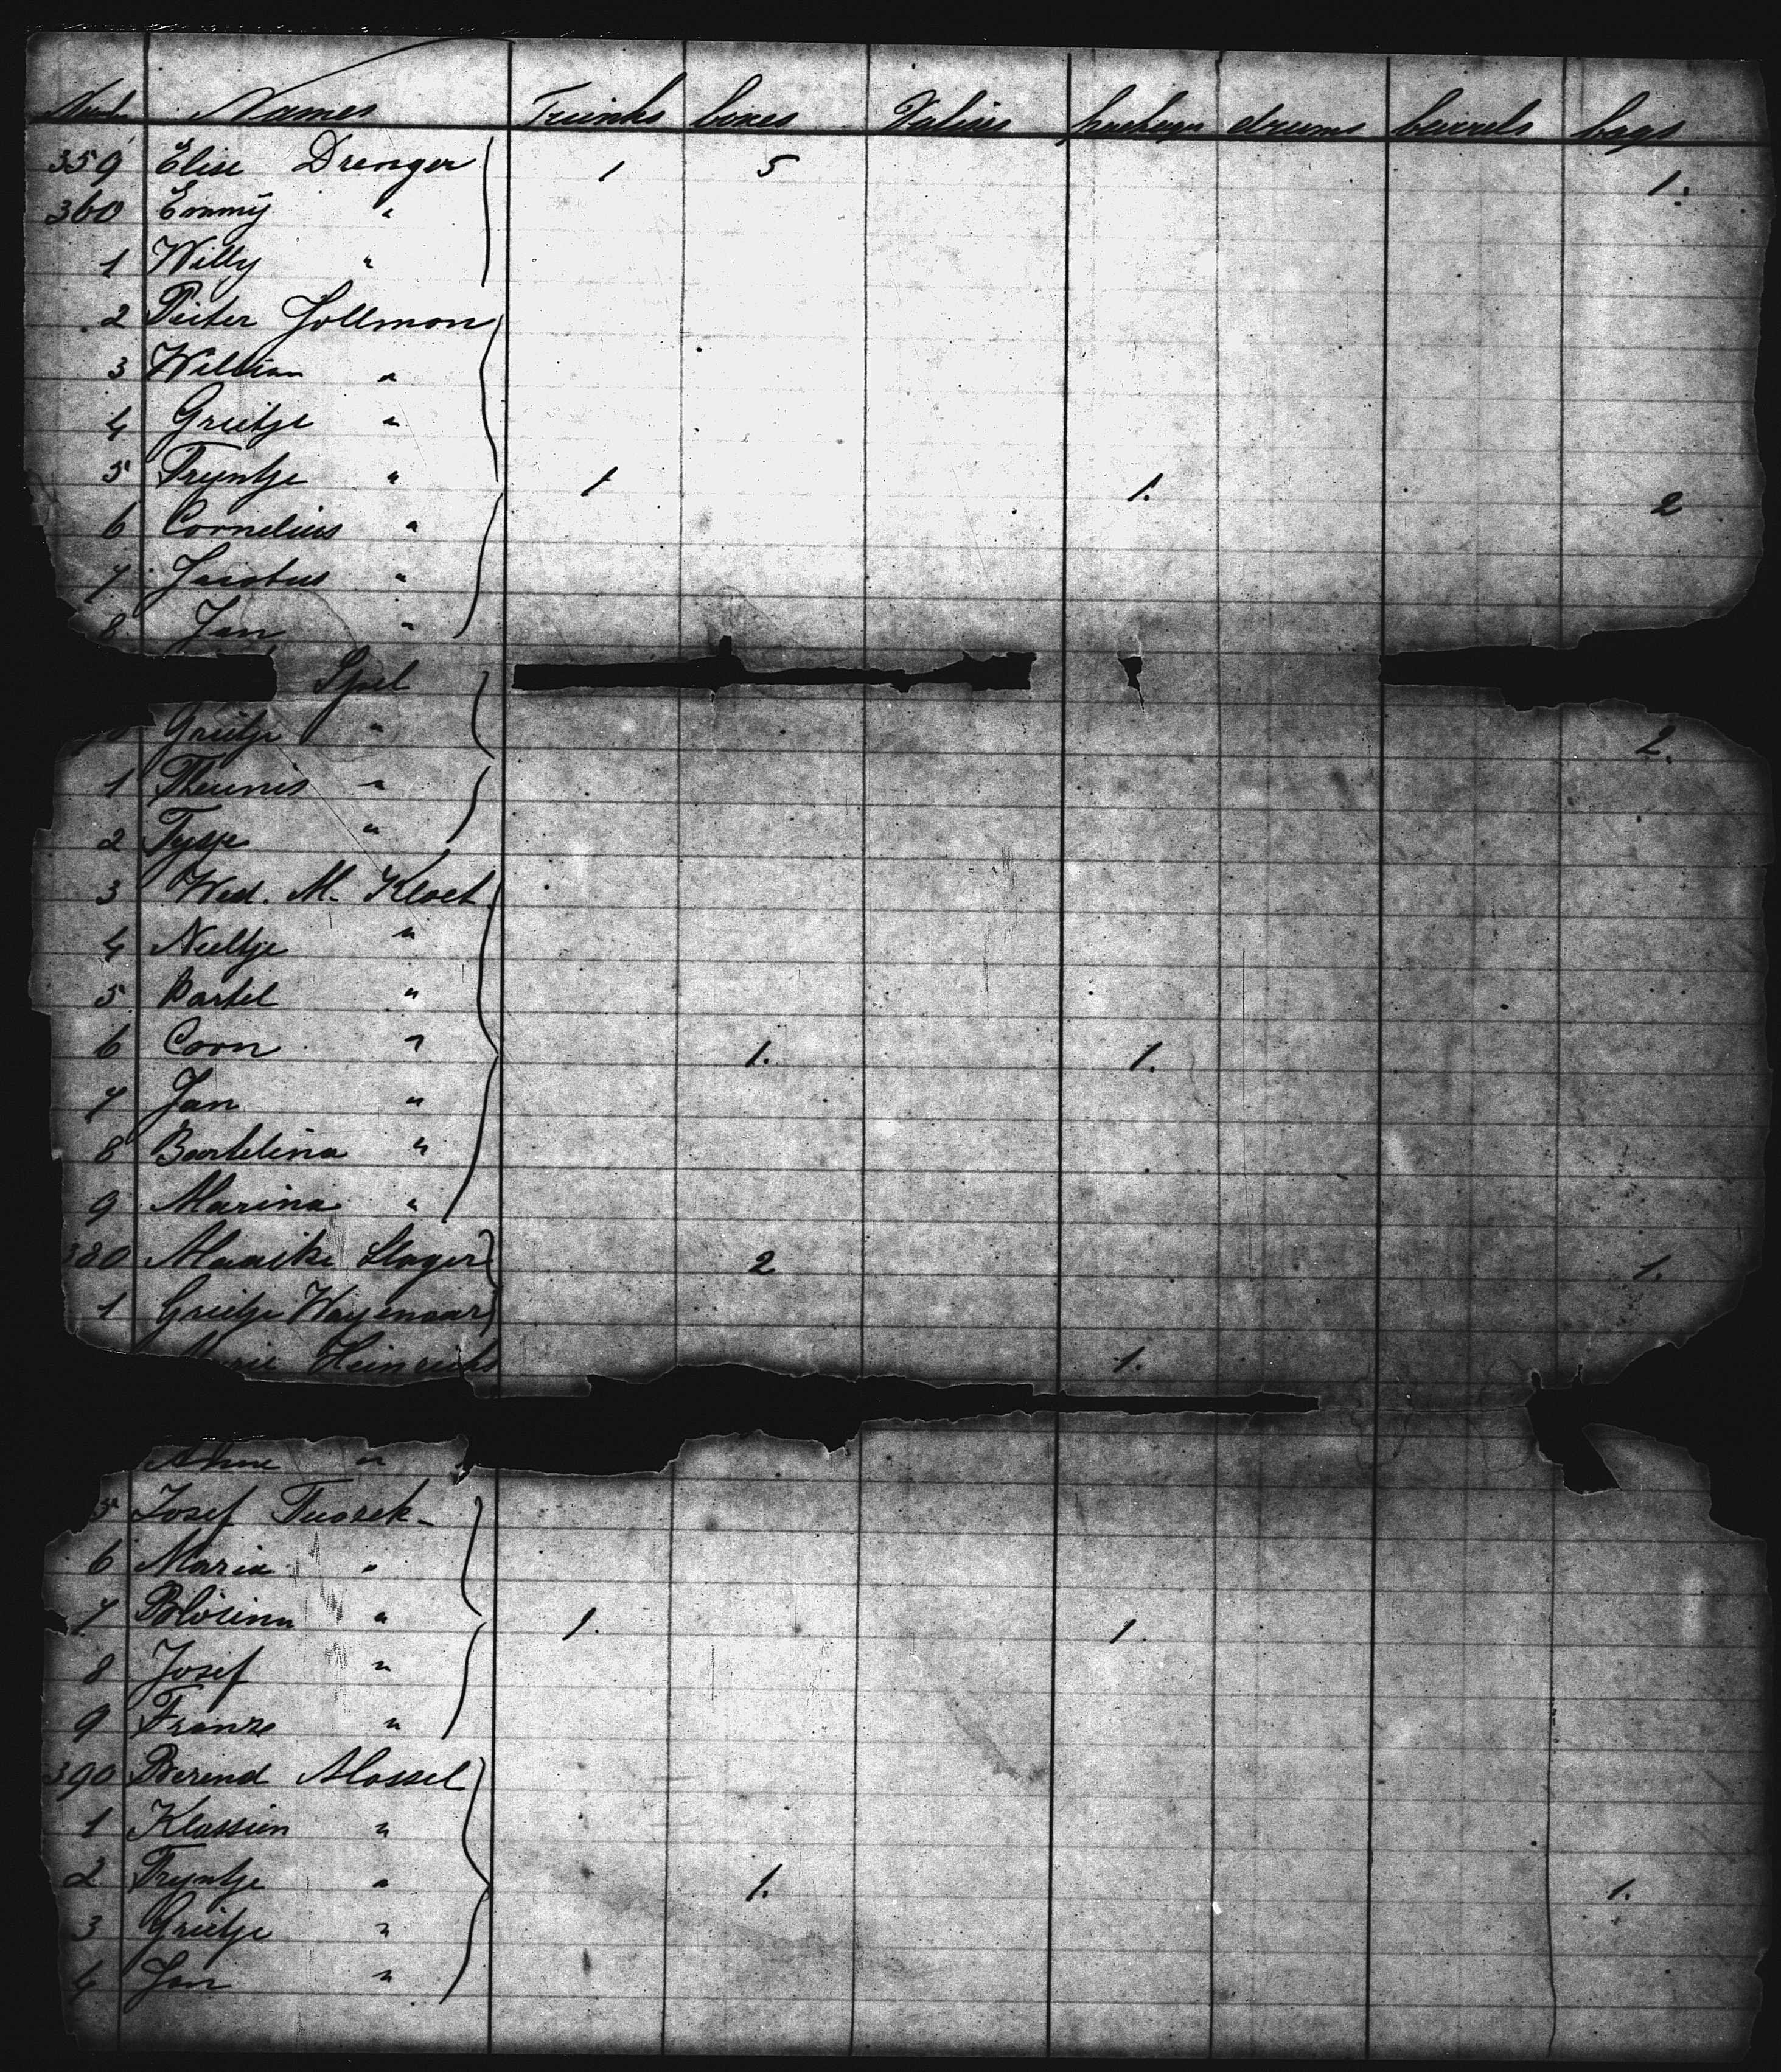 Names Trunks boxes Valises packages drums barrels bags
359 Elise Drenger 1 5 1.
360 Emmy "
1 Willy "
2 Pieter Jollmon
3 William "
4 Grietje "
5 Tryntje " 1 1. 2
6 Cornelius "
7 Jacobus "
8 Jan "
Spel
Grietje " 2.
1 Theunis "
2 "
3 Wed. M. Kloet
4 Neeltje "
5 Bartel "
6 Corn " 1. 1.
7 Jan "
8 Bartelina "
9 Marina "
380 Maaike Slager 2 1.
1 Grietje Wagenaar
Heinrichs 1.
"
5 Josef
6 Maria "
7 " 1. 1.
8 Josef "
9 Franze "
390 Berend Mossel
1 Klassien "
2 Tryntje " 1. 1.
3 Grietje "
4 Jan "